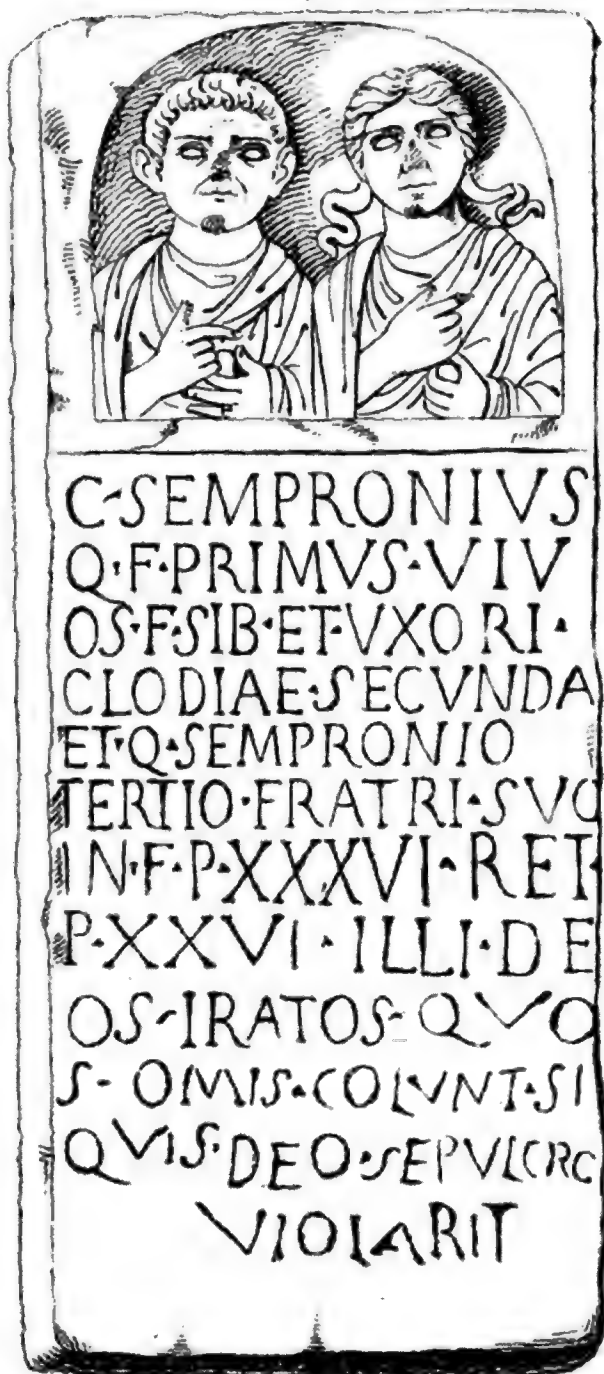 C·SEMPRONIVS
Q·F·PRIMVS·VIV
OS·F·SIB·ET·VXORI·
CLODIAE·SECVNDA
ET·Q·SEMPRONIO
TERTIO·FRATRI·SVO
IN·F·P·XXXVI·RET·
P·XXVI·ILLI·DE
OS·IRATOS·QVO
S·OMIS·COLVNT·SI
QVIS·DEO·SEPVLCRO
VIOLARIT